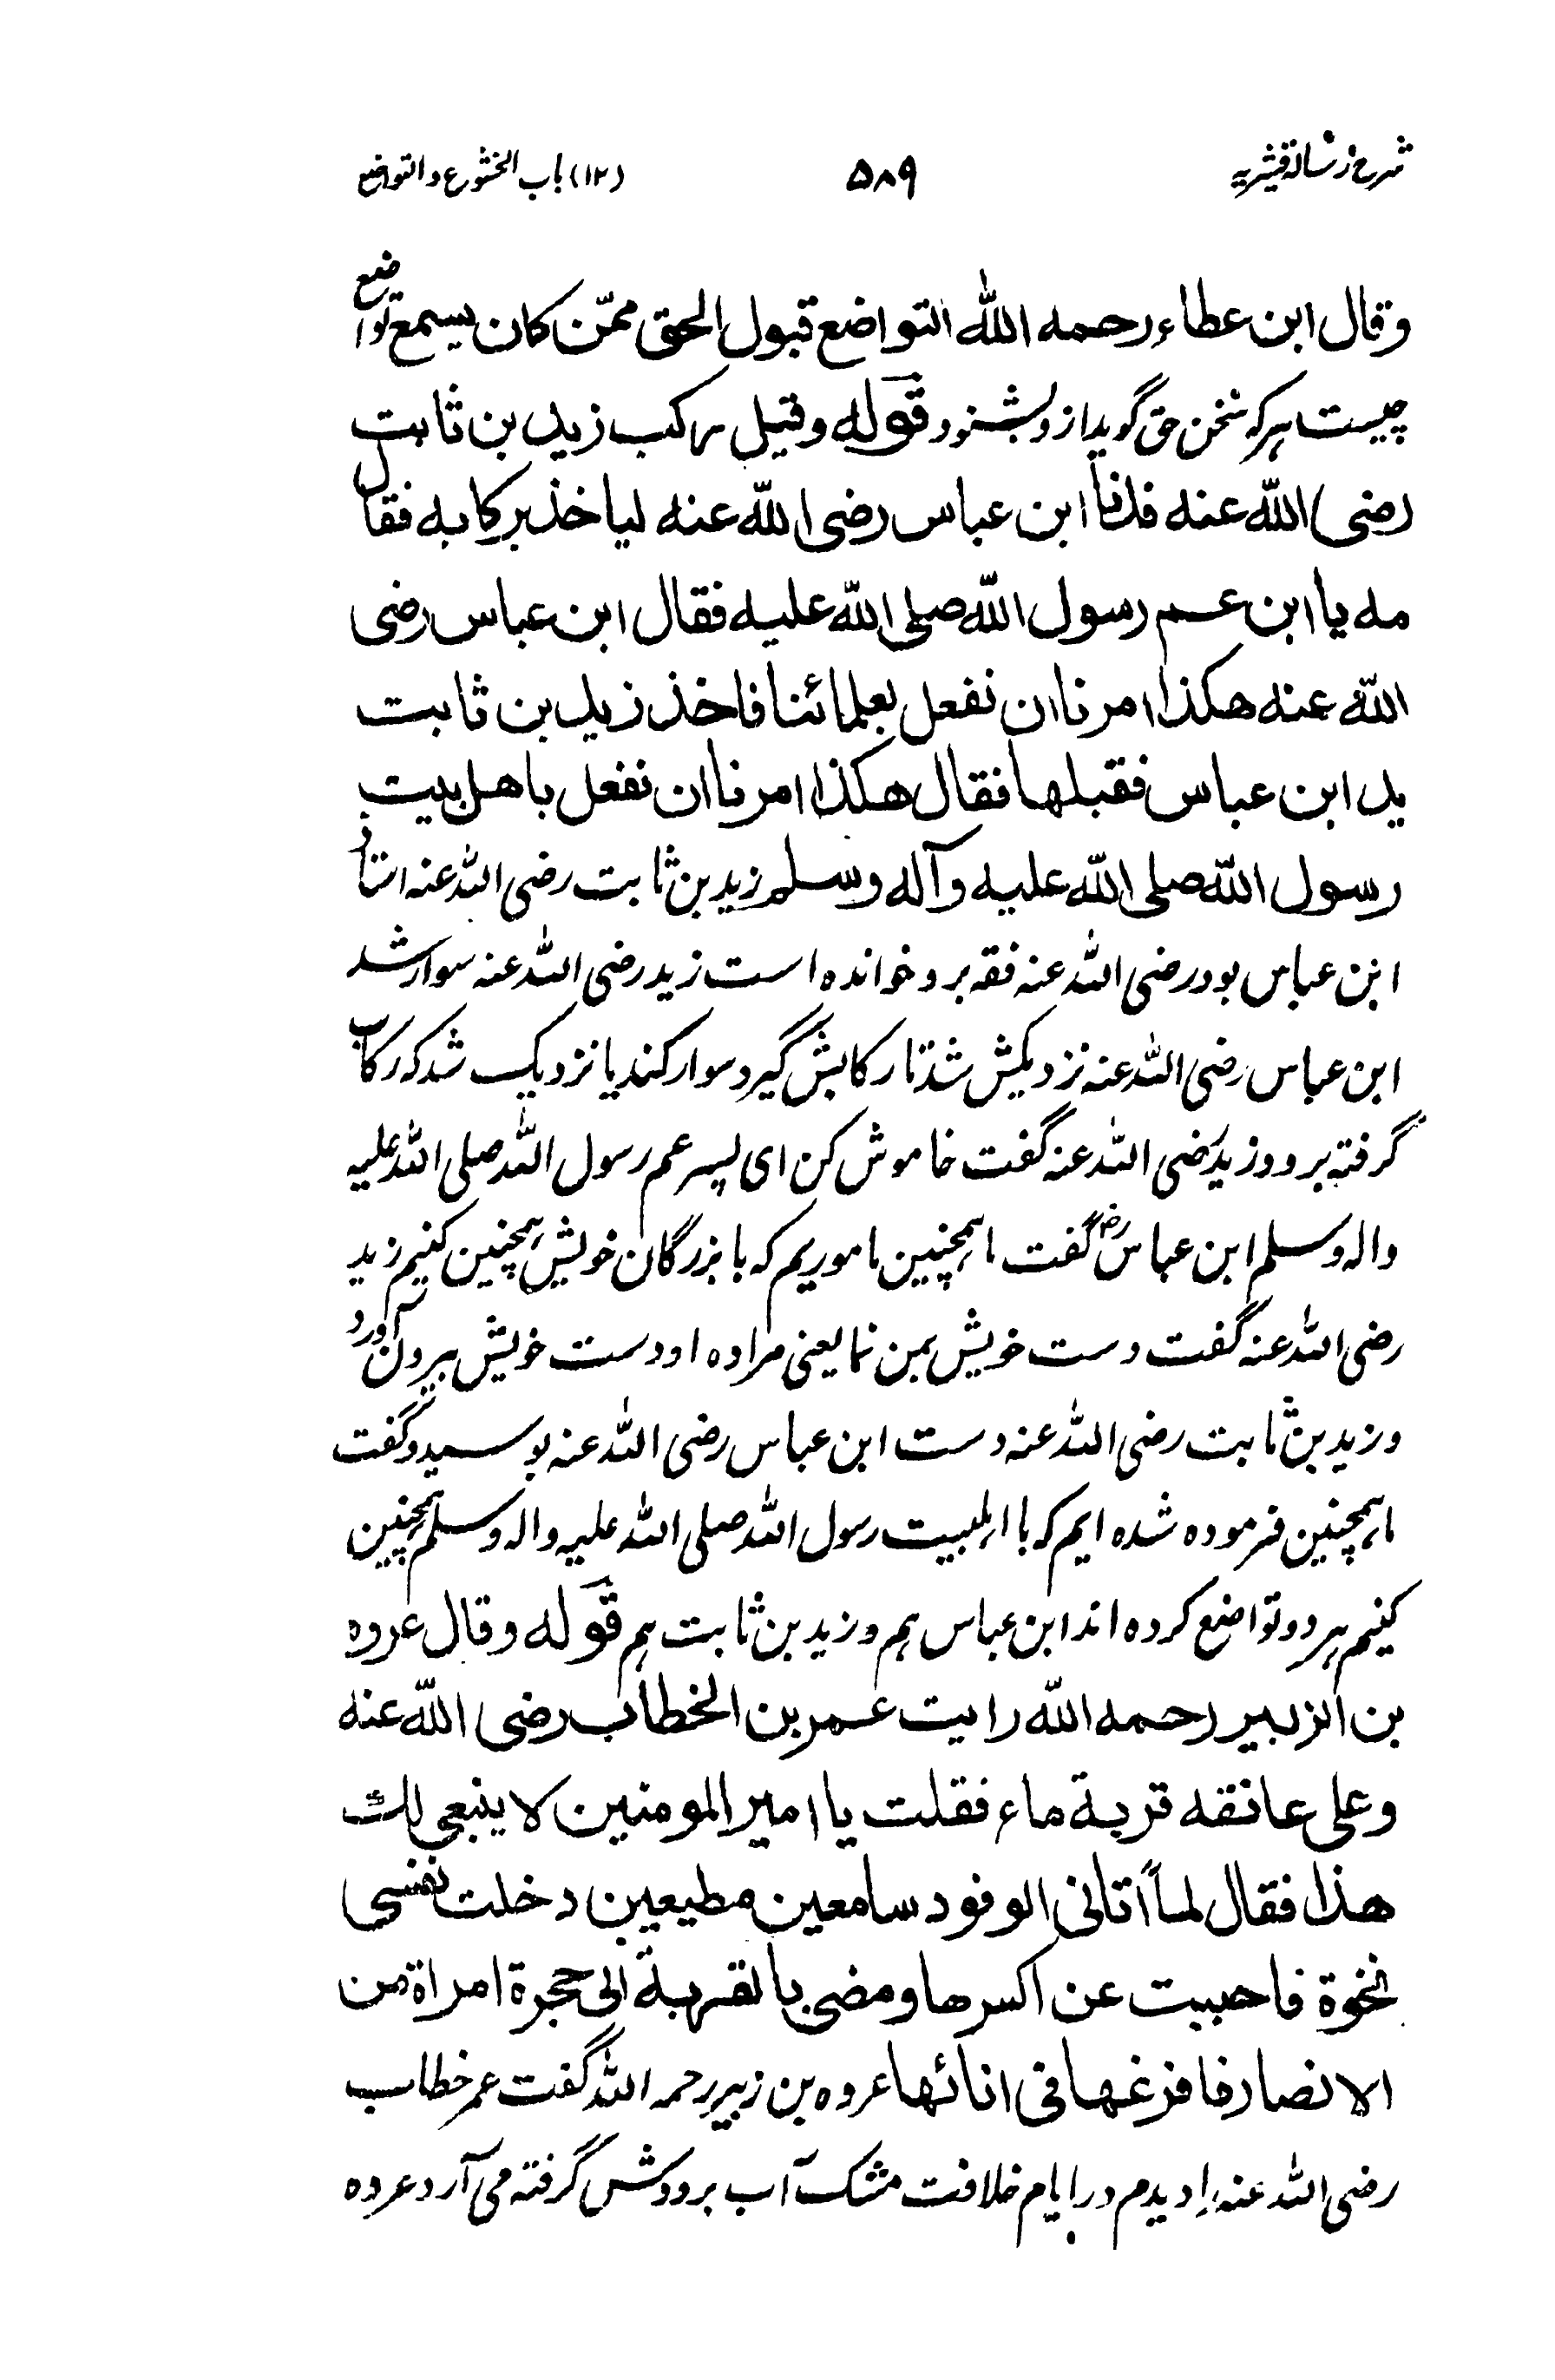 شرح رسالہ قشیریہ
۵۸۹
(۱۲) باب الخشوع والتواضع
وقال ابن عطاء رحمه اللّٰه التواضع قبول الحق ممّن كان يسمع تواضع
چیست ہر کہ سخن حق گوید ازو بشنود قوله وقيل ركب زيد بن ثابت
رضى اللّٰه عنه فدنا ابن عباس رضى اللّٰه عنه لياخذ بركابه فقال
مه يا ابن عم رسول اللّٰه صلى اللّٰه عليه فقال ابن عباس رضى
اللّٰه عنه هكذا امرنا ان نفعل بعلمائنا فاخذ زيد بن ثابت
يد ابن عباس فقبلها فقال هكذا امرنا ان نفعل باهل بيت
رسول اللّٰه صلى اللّٰه عليه وآله وسلم زید بن ثابت رضی اللہ عنہ استاد
ابن عباس بود رضی اللہ عنہ فقہ برو خواندہ است زید رضی اللہ عنہ سوار شد
ابن عباس رضی اللہ عنہ نزدیکش شد تا رکابش گیرد سوار کند یا نزدیک شد کہ رکاب
گرفتہ برود زید رضی اللہ عنہ گفت خاموش کن ای پسر عم رسول اللہ صلی اللہ علیہ
والہ وسلم ابن عباس رض گفت ما ہمچنین ماموریم کہ با بزرگان خویش ہمچنین کنیم زید
رضی اللہ عنہ گفت دست خویش بمن نما یعنی مرا دہ او دست خویش بیرون آورد
و زید بن ثابت رضی اللہ عنہ دست ابن عباس رضی اللہ عنہ بوسید و گفت
ما ہمچنین فرمودہ شدہ ایم کہ با اہلبیت رسول اللہ صلی اللہ علیہ والہ وسلم ہمچنین
کنیم ہر دو تواضع کردہ اند ابن عباس ہم و زید بن ثابت ہم قوله وقال عروه
بن الزبير رحمه اللّٰه رايت عمر بن الخطاب رضى اللّٰه عنه
وعلى عاتقه قربة ماء فقلت يا امير المومنين لا ينبغى لك
هذا فقال لما اتانى الوفود سامعين مطيعين دخلت نفسى
نخوة فاحببت عن اكسرها ومضى بالقربة الى حجرة امراة من
الانصار فافرغها فى انائها عروہ بن زبیر رحمہ اللہ گفت عمر خطاب
رضی اللہ عنہ را دیدم در ایام خلافت مشک آب بر دوش گرفتہ می آرد عروہ